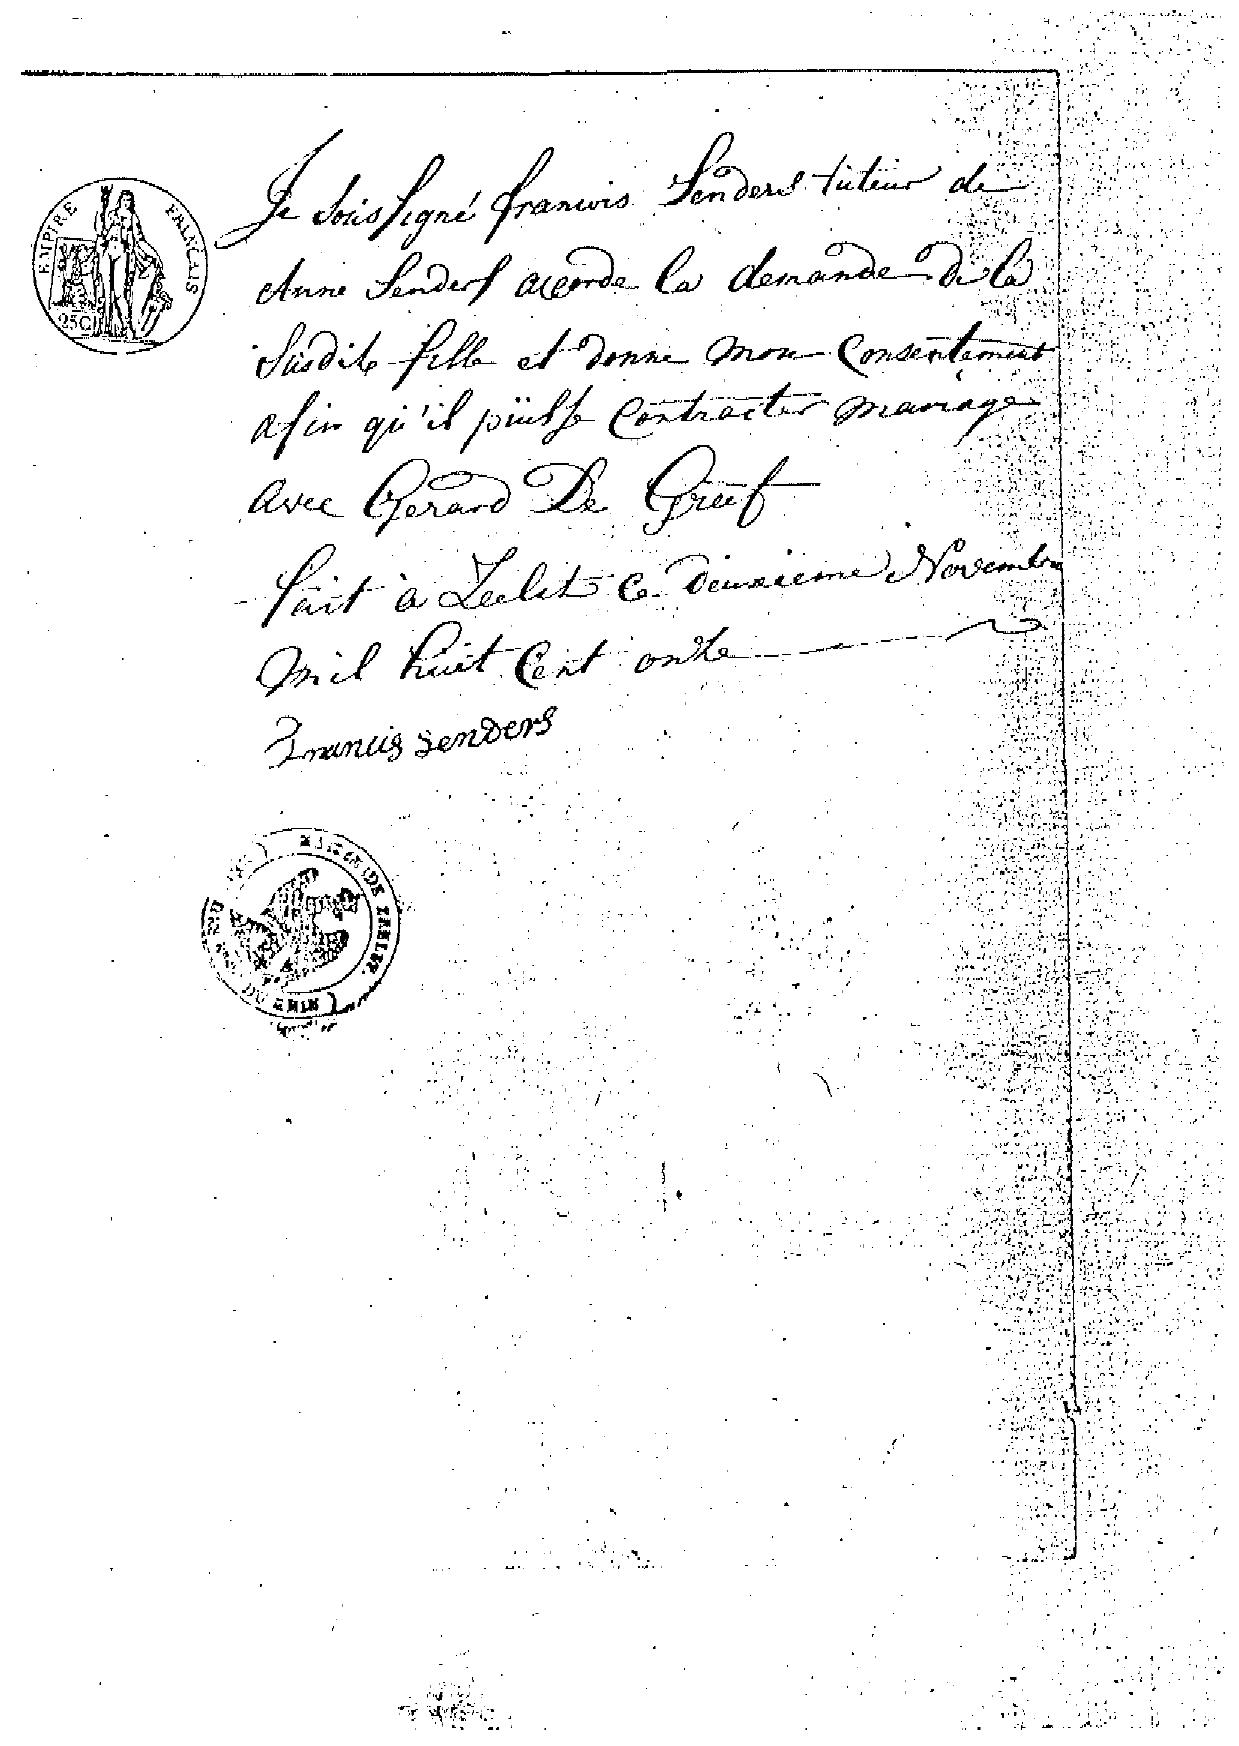 EMPIRE FRANÇAIS
25C
Je Soussigné francois Senders tuteur de
Anne Senders acorde la demande de la
Susdite fille et donne mon Consentement
afin qu'il püisse Contracter mariage
avec Gerard De Greef
fait à Leelst Ce deuxieme Novembre
Mil huit Cent onze
Francis senders
DE
RHIN